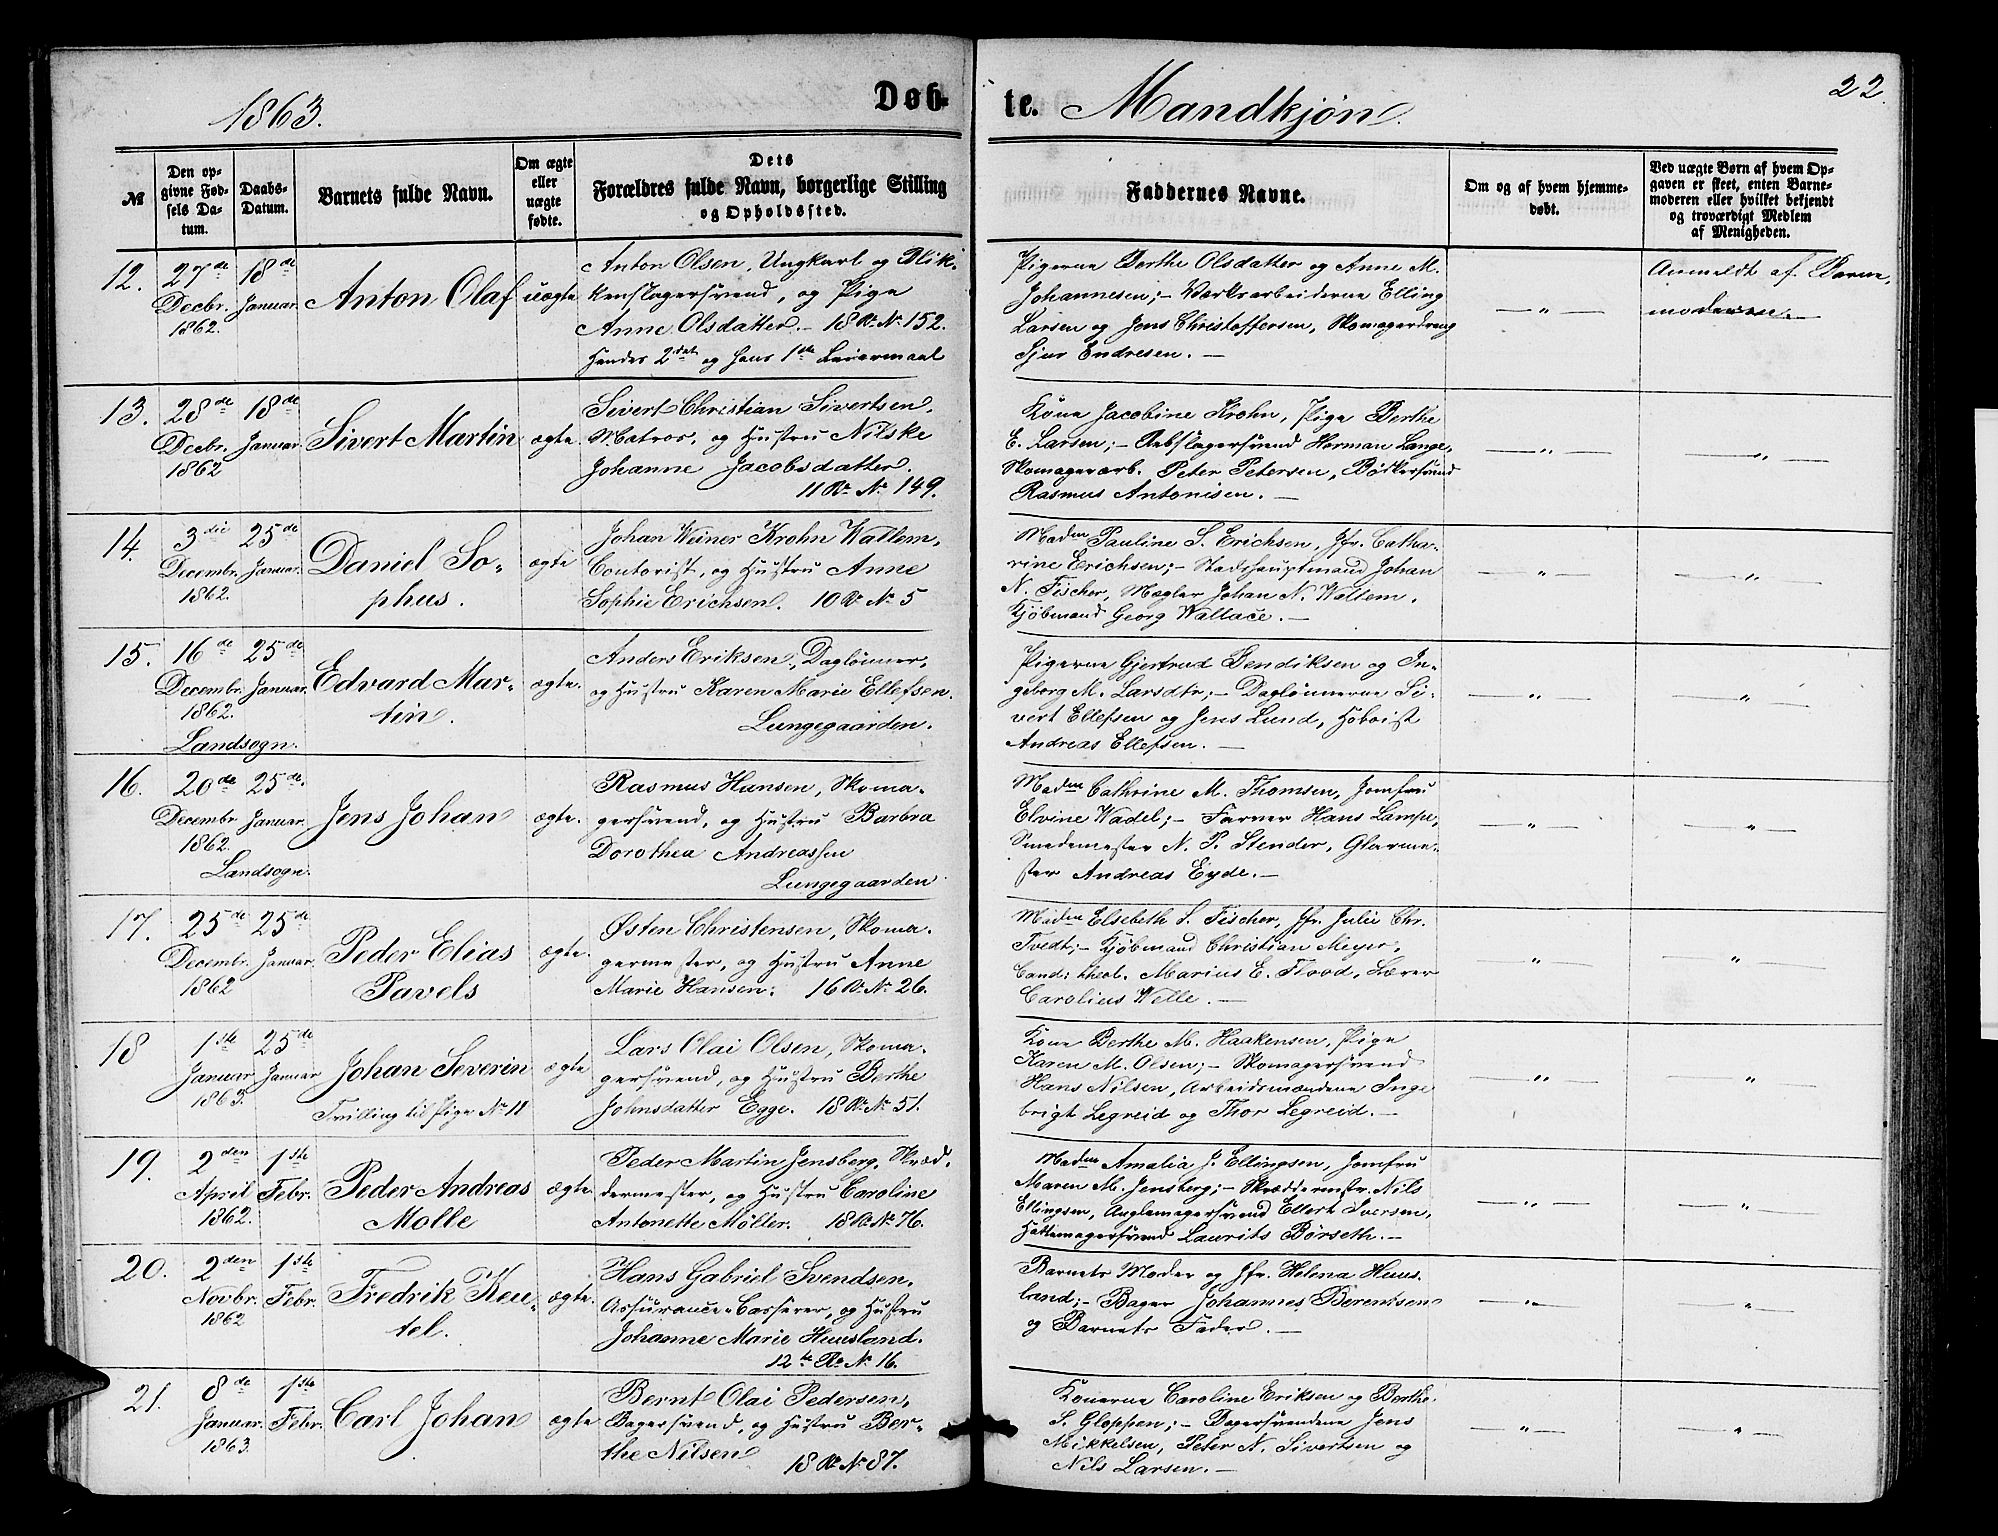 1863.
Døb-
te. Mandkjøn.
22.
№
Den op-
givne Fød-
sels Da-
tum.
Daabs-
Datum.
Barnets fulde Navn.
Om ægte
eller
uægte
fødte.
Dets
Forældres fulde Navn, borgerlige Stilling
og Opholdssted.
Faddernes Navne.
Om og af hvem hjemme-
døbt.
Ved uægte Børn af hvem Op-
gaven er skeet, enten Barne-
moderen eller hvilket bekjendt
og troværdigt Medlem
af Menigheden.
12.
27de
Decbr.
1862.
18de
Januar.
Anton Olaf
uægte
Anton Olsen, Ungkarl og Blik-
kenslagersvend, og Pige
Anne Olsdatter. – 18 R. № 152.
Hendes 2det og hans 1ste Leiermaal
Pigerne Berthe Olsdatter og Anne M.
Johannesen; – Værksarbeiderne Elling
Larsen og Jens Christoffersen, Skomagerdreng
Sjur Endresen. –
– " –
Anmeldt af Barne-
moderen. –
13.
28de
Decbr.
1862
18de
Januar.
Sivert Martin
ægte.
Sivert Christian Sivertsen,
Matros, og Hustru Nilske
Johanne Jacobsdatter.
11 R. № 149.
Kone Jacobine Krohn, Pige Berthe
E. Larsen; – Rebslagersvend Herman Lange,
Skomagerarb. Peter Petersen, Bødkersvend
Rasmus Antonisen. –
– " –
– " –
14.
3die
Decembr.
1862.
25de
Januar.
Daniel So-
phus.
ægte
Johan Weiner Krohn Wallem,
Contorist, og Hustru Anne
Sophie Erichsen. 10 R. № 5
Madm Pauline S. Erichsen, Jfr. Catha-
rine Erichsen; – Stadshauptmand Johan
N. Fischer, Mægler Johan N. Wallem,
Kjøbmand Georg Wallace. –
– " –
– " –
15.
16de
Decembr.
1862.
Landsogn.
25de
Januar.
Edvard Mar-
tin.
ægte.
Anders Eriksen, Daglønner,
og Hustru Karen Marie Ellefsen.
Lungegaarden.
Pigerne Gjertrud Bendiksen og In-
geborg M. Larsdtr; – Daglønnerne Si-
vert Ellefsen og Jens Lund, Hoboist
Andreas Ellefsen. –
– " –
– " –
16.
20de
Decembr.
1862.
Landsogn.
25de
Januar.
Jens Johan
ægte.
Rasmus Hansen, Skoma-
gersvend, og Hustru Barbra
Dorothea Andreassen
Lungegaarden
Madm Cathrine M. Thomsen, Jomfru
Elvine Wadel; – Farver Hans Lampe,
Smedemester N. P. Stender, Glarme-
ster Andreas Eyde. –
– " –
– " –
17.
25de
Decembr.
1862
25de
Januar.
Peder Elias
Pavels
ægte.
Østen Christensen, Skoma-
germester, og Hustru Anne
Marie Hansen. 16 R. № 26.
Madm Elsebeth S. Fischer, Jfr. Julie Chr.
Tvedt; – Kjøbmand Christian Meyer,
Cand: theol. Marius E. Flood, Lærer
Carolius Welle. –
– " –
– " –
18
1ste
Januar
1863.
25de
Januar
Johan Severin
Tvilling til Pige № 11
ægte
Lars Olai Olsen, Skoma-
gersvend, og Hustru Berthe
Johnsdatter Egge. 18 R. № 51.
Kone Berthe M. Haakensen, Pige
Karen M. Olsen; – Skomagersvend
Hans Nilsen, Arbeidsmændene Inge
brigt Legreid og Thor Legreid. –
– " –
– " –
19.
2den
April
1862.
1ste
Febr.
Peder Andreas
Molle
ægte.
Peder Martin Jensberg, Skræd-
dermester, og Hustru Caroline
Antonette Møller. 18 R. № 76.
Madm Amalia J. Ellingsen, Jomfru
Maren M. Jensberg; – Skræddermstr. Nils
Ellingsen, Anglemagersvend Ellert Iversen,
Hattemagersvend Laurits Børseth. –
– " –
– " –
20.
2den
Novbr.
1862
1ste
Febr.
Fredrik Keu-
tel.
ægte.
Hans Gabriel Svendsen,
Assurance-Casserer, og Hustru
Johanne Marie Huusland.
12te R. № 16.
Barnets Moder og Jfr. Helena Huus-
land; – Bager Johannes Berentsen
og Barnets Fader. –
– " –
– " –
21.
8de
Januar.
1863.
1ste
Febr.
Carl Johan
ægte
Bernt Olai Pedersen,
Bagersvend, og Hustru Ber-
the Nilsen
18 R. № 87.
Konerne Caroline Eriksen og Berthe
S. Gloppen; – Bagersvendene Jens
Mikkelsen, Peter N. Sivertsen og
Nils Larsen. –
– " –
– " –